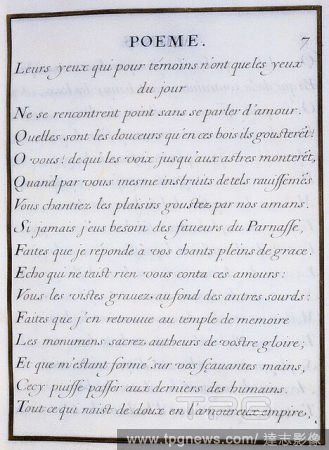 POEME. 7
Leurs yeux qui pour témoins n'ont que les yeux
du jour
Ne se rencontrent point sans se parler d'amour.
Quelles sont les douceurs qu'en ces bois ils gousterẽt!
O vous! de qui les voix jusqu'aux astres monterẽt,
Quand par vous mesme instruits de tels ravissemẽs
Vous chantiez les plaisirs goustez par nos amans.
Si jamais j'eus besoin des faveurs du Parnasse,
Faites que je réponde à vos chants pleins de grace.
Echo qui ne taist rien vous conta ces amours:
Vous les vistes gravez au fond des antres sourds:
Faites que j'en retrouve au temple de memoire
Les monumens sacrez autheurs de vostre gloire;
Et que m'estant formé sur vos sçavantes mains,
Cecy puisse passer aux derniers des humains.
Tout ce qui naist de doux en l'amoureux empire,
TPG
www.tpgnews.com / 達志影像